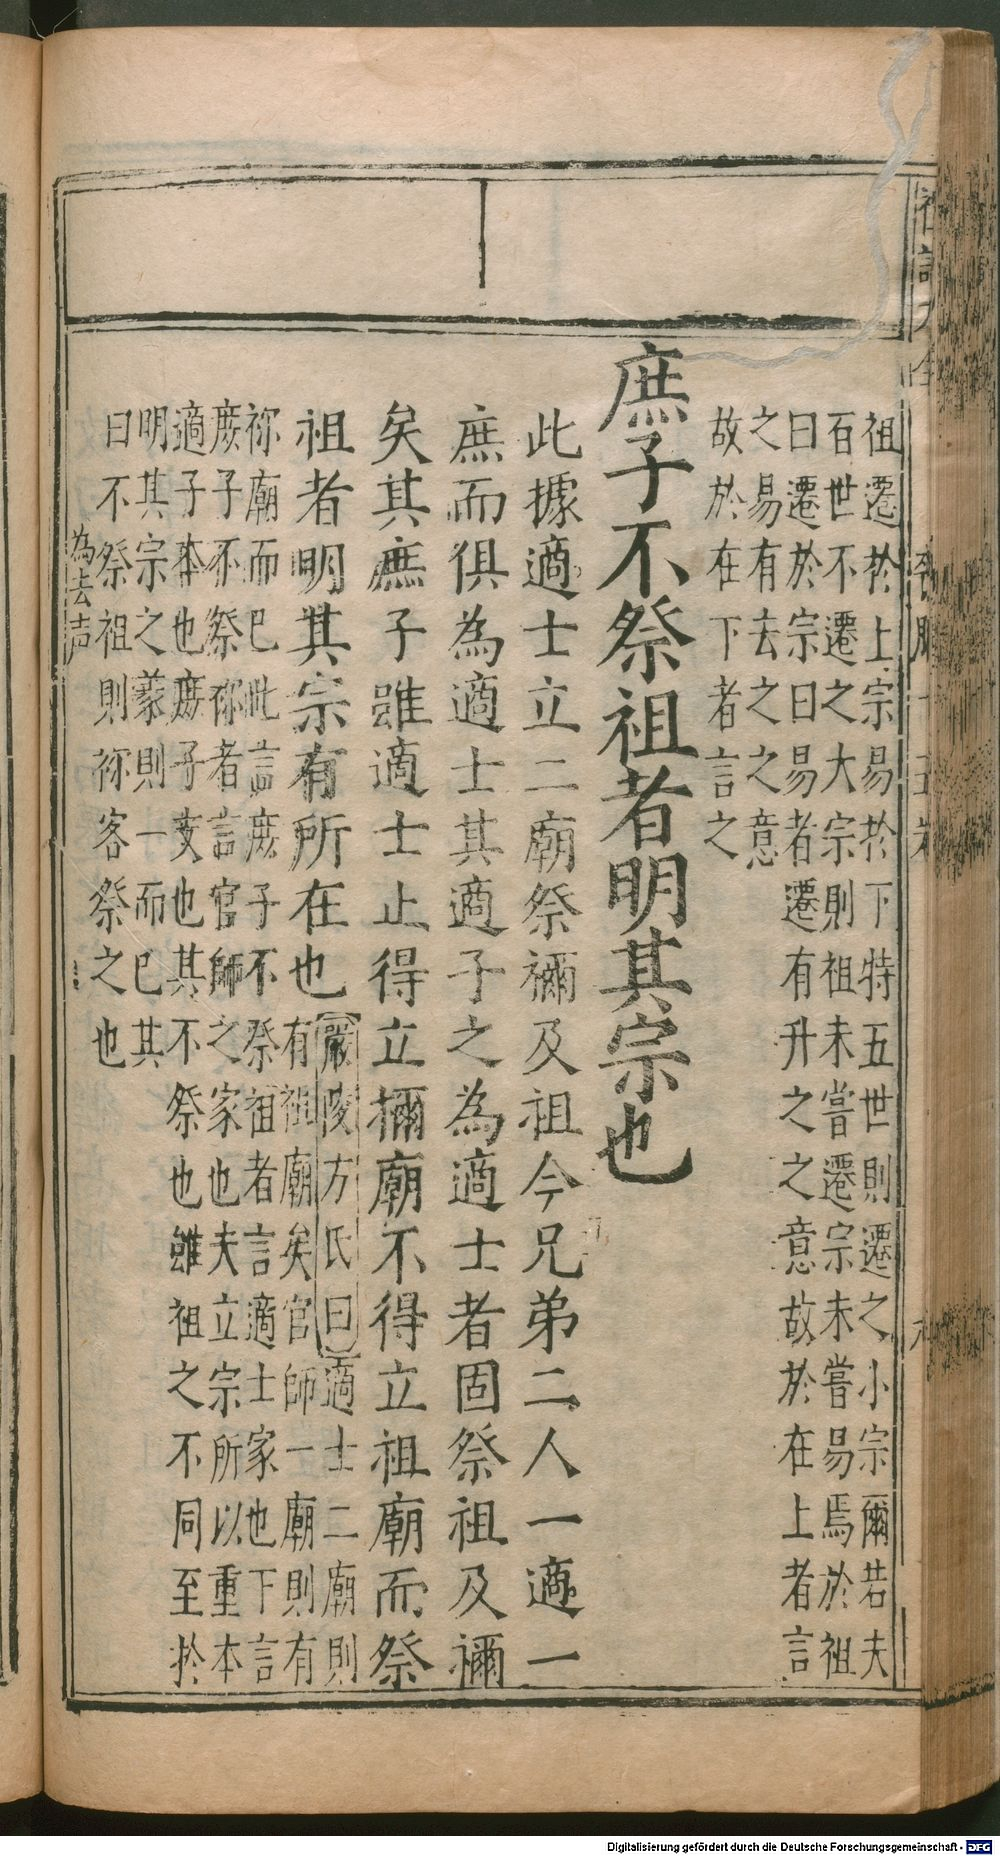 祖遷於上宗易於下特五世則遷之小宗爾若夫
百世不遷之大宗則祖未嘗遷宗未嘗易焉於祖
曰遷於宗曰易者遷有升之之意故於在上者言
之易有去之之意
故於在下者言之
庶子不祭祖者明其宗也
此據適士立二廟祭禰及祖今兄弟二人一適一
庶而俱為適士其適子之為適士者固祭祖及禰
矣其庶子雖適士止得立禰廟不得立祖廟而祭
祖者明其宗有所在也
嚴陵方氏曰適士二廟則
有祖廟矣官師一廟則有
祢廟而已此言庶子不祭祖者言適士家也下言
庶子不祭祢者言官師之家也夫立宗所以重本
適子本也庶子支也其不祭也雖祖之不同至於
明其宗之義則一而已其
曰不祭祖則祢容祭之也
為去声
Digitalisierung gefördert durch die Deutsche Forschungsgemeinschaft - DFG